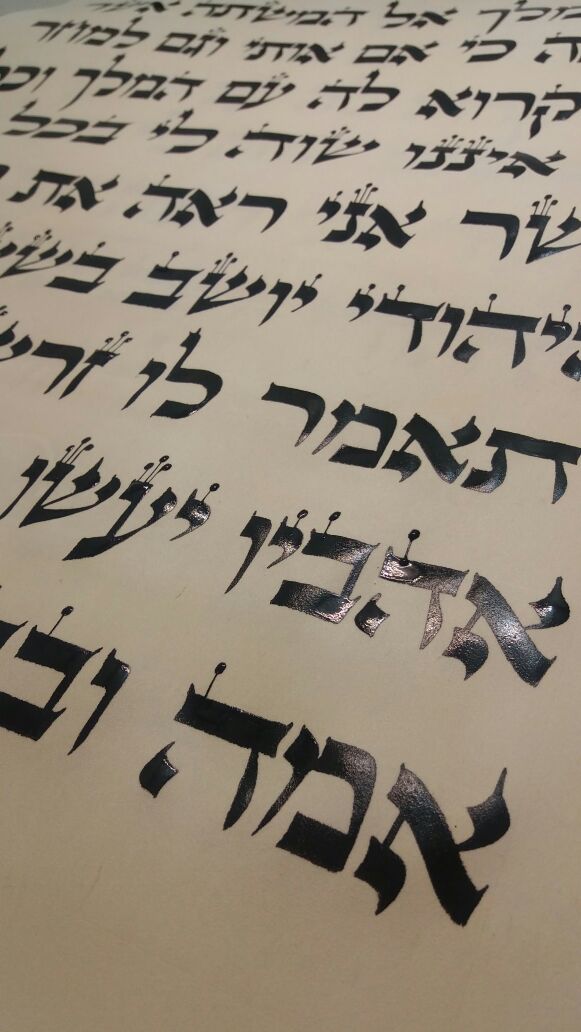 מלך אל המשתה אשר
ה כי אם אותי וגם למחר
קרוא לה עם המלך וכל
איננו שוה לי בכל
שר אני ראה את
יהודי יושב בשע
תאמר לו זרש
אהביו יעשו
אמה ובב